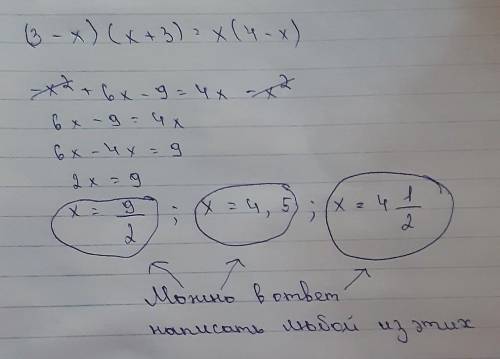 (3 - x) (x + 3) = x (4 - x)
-x² + 6x - 9 = 4x - x²
6x - 9 = 4x
6x - 4x = 9
2x = 9
x = 9/2 ; x = 4,5 ; x = 4 1/2
Можно в ответ
написать любой из этих